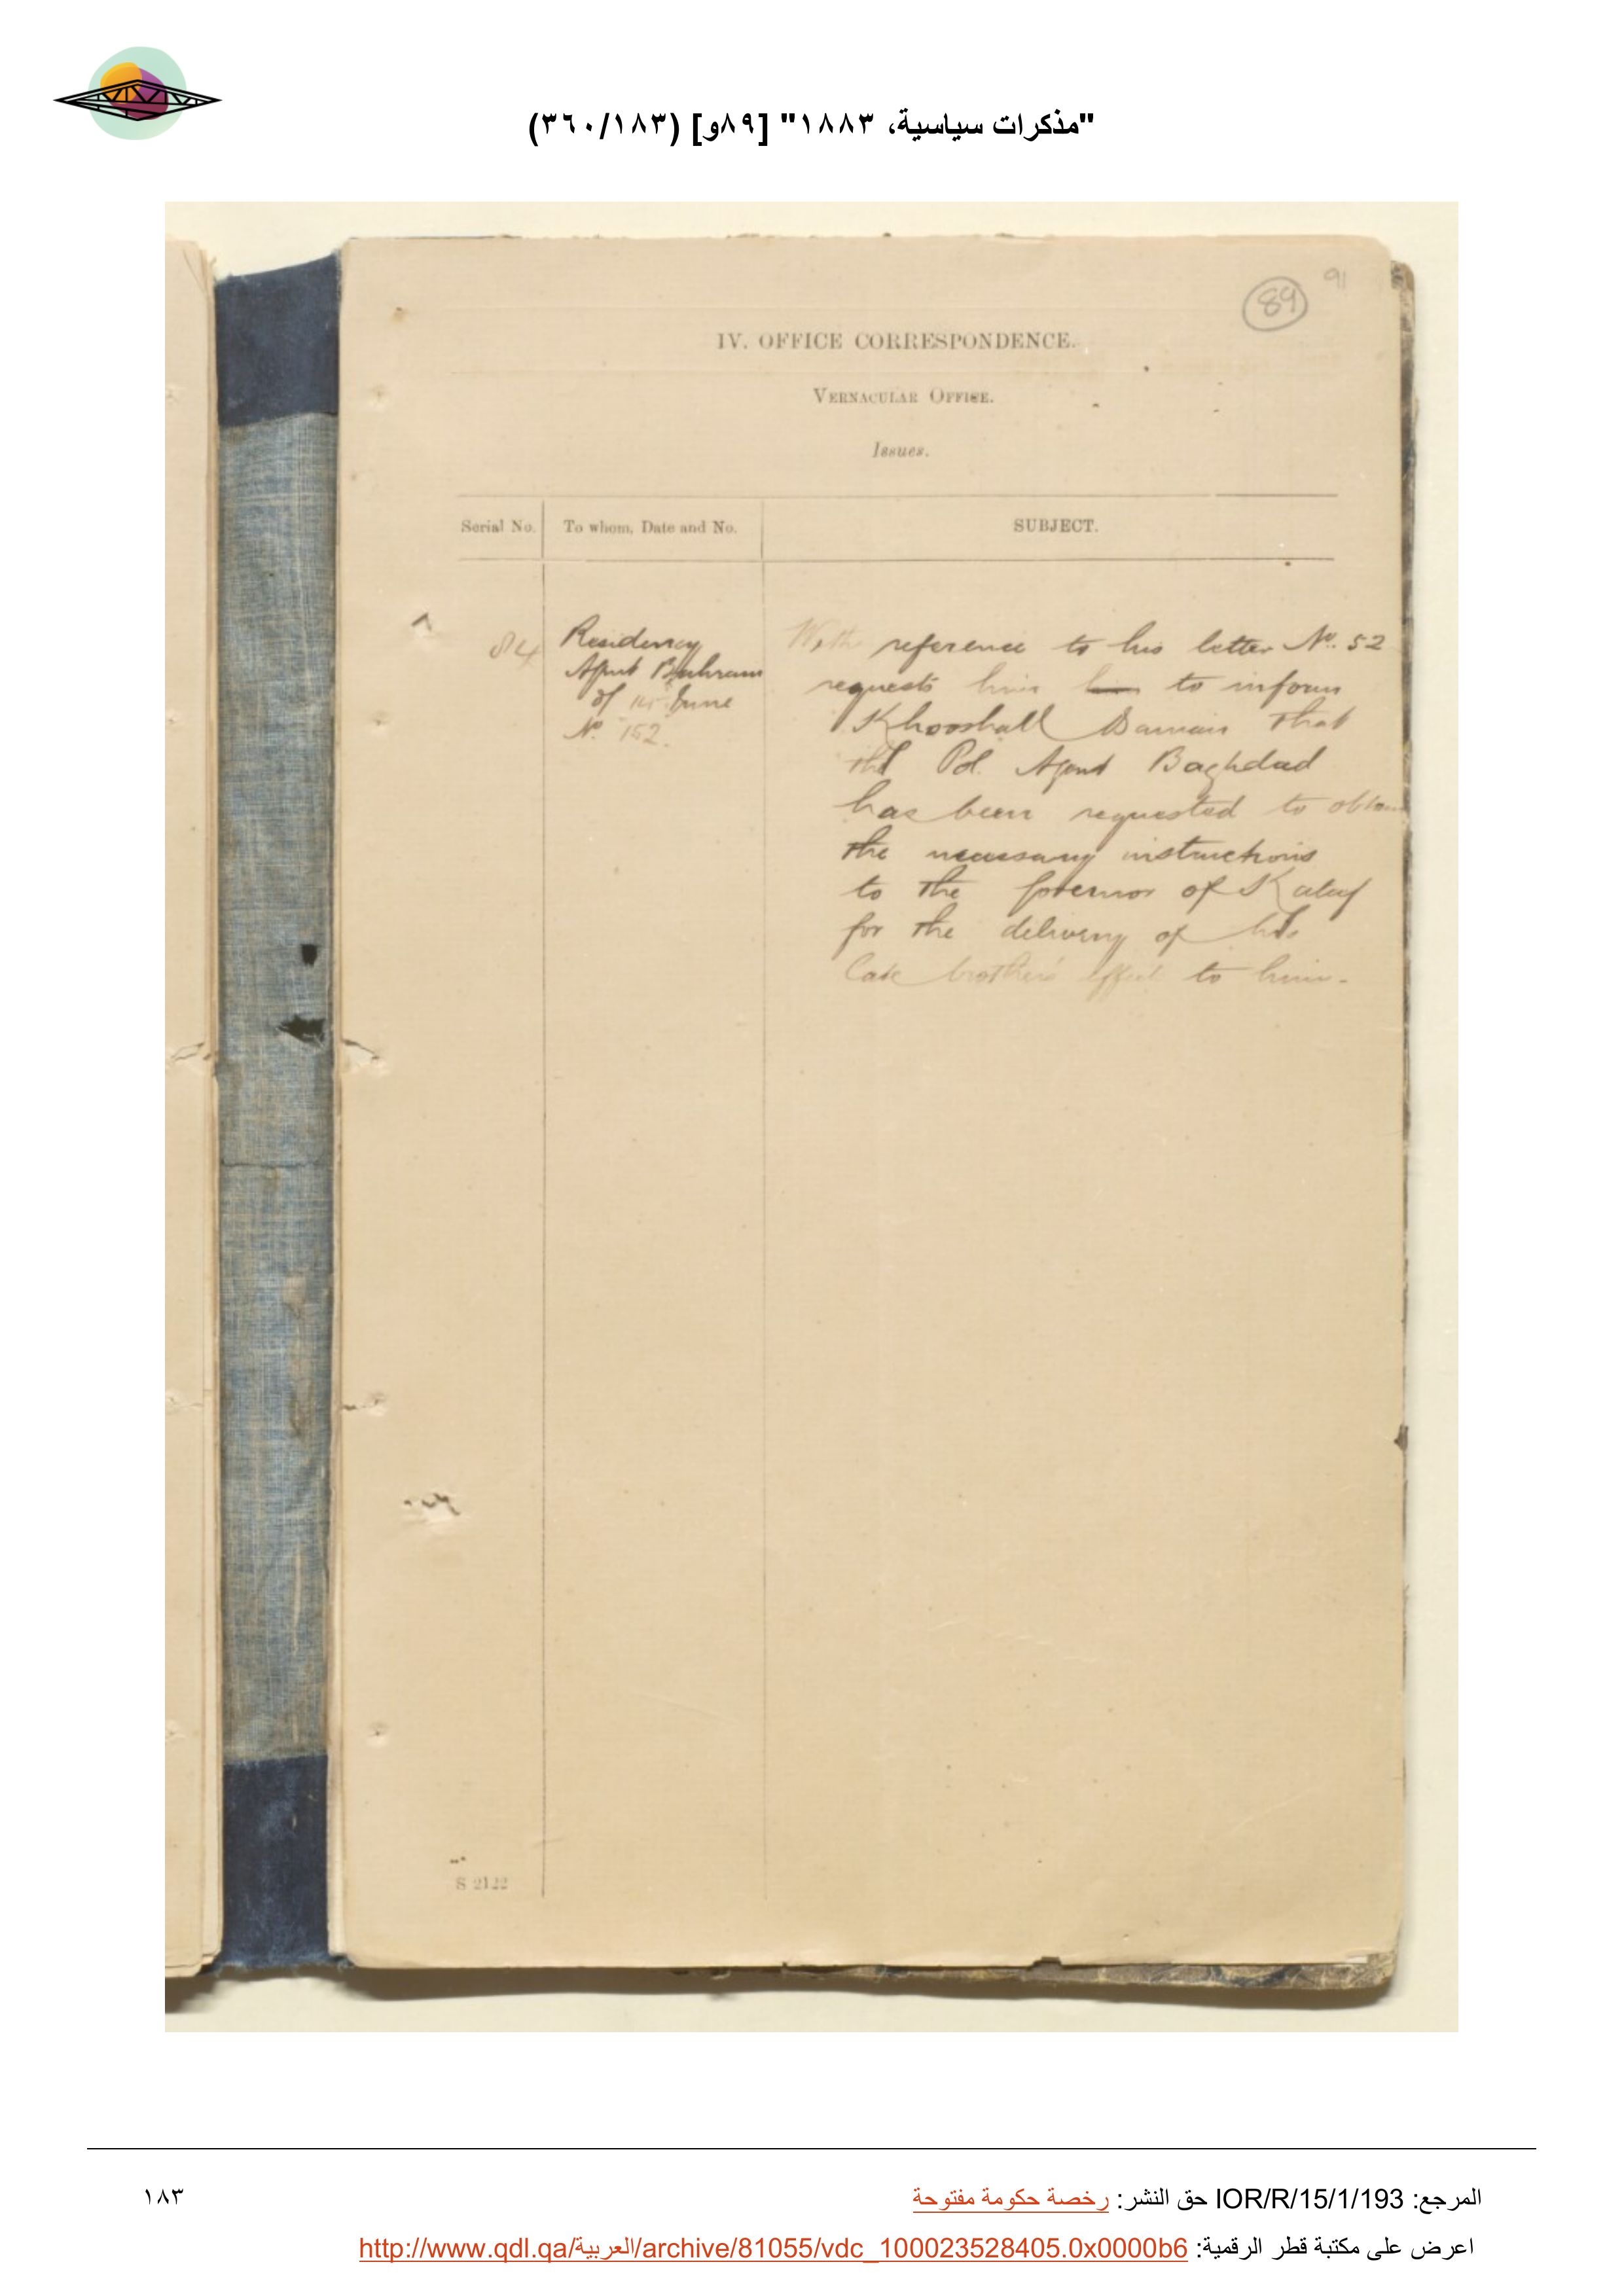 "مذكرات سياسية، ١٨٨٣" [٨٩و] (٣٦٠/١٨٣)
91
89
IV. OFFICE CORRESPONDENCE.
VERNACULAR OFFICE.
Issues.
Serial No. To whom, Date and No. SUBJECT.
84
Residency
Agent Bahrain
of June
No. 152.
With reference to his letter No. 52
requests him him to inform
Khooshall that
the Pol. Agent Baghdad
has been requested to obtain
the necessary instructions
to the Governor of Kateef
for the delivery of his
late brother's effect to him.
S 2122
المرجع: IOR/R/15/1/193 حق النشر: رخصة حكومة مفتوحة
١٨٣
اعرض على مكتبة قطر الرقمية: http://www.qdl.qa/العربية/archive/81055/vdc_100023528405.0x0000b6